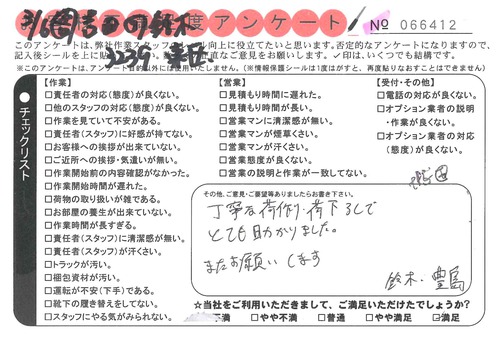 度アンケート
№ 066412
このアンケートは、弊社作業スタッフ
ル向上に役立てたいと思います。否定的なアンケートになりますので、
記入後シールを上に貼り
直なご意見をお願いします。✓印は、いくつでも結構です。
※このアンケートは、アンケート目的以外には使用いたしません。(※情報保護シールは1度はがすと、再度貼りなおすことはできません)
●チェックリスト
【作業】
□責任者の対応(態度)が良くない。
□他のスタッフの対応(態度)が良くない。
□作業を見ていて不安がある。
□責任者(スタッフ)に好感が持てない。
□お客様への挨拶が出来ていない。
□ご近所への挨拶・気遣いが無い。
□作業開始前の内容確認がなかった。
□作業開始時間が遅れた。
□荷物の取り扱いが雑である。
□お部屋の養生が出来ていない。
□作業時間が長すぎる。
□責任者(スタッフ)に清潔感が無い。
□責任者(スタッフ)が汗くさい。
□トラックが汚い。
□梱包資材が汚い。
□運転が不安(下手)である。
□靴下の履き替えをしてない。
□スタッフにやる気がみられない。
【営業】
□見積もり時間に遅れた。
□見積もり時間が長い。
□営業マンに清潔感が無い。
□営業マンが煙草くさい。
□営業マンが汗くさい。
□営業態度が良くない。
□営業の説明と作業が一致してない。
【受付・その他】
□電話の対応が良くない。
□オプション業者の説明
・作業が良くない。
□オプション業者の対応
(態度)が良くない。
その他、ご意見・ご要望等ありましたらお書き下さい。
丁寧な荷作り・荷下ろしで
とても助かりました。
またお願いします
鈴木・豊島
☆当社をご利用いただきまして、ご満足いただけたでしょうか?
不満 □やや不満 □普通 □やや満足 □満足